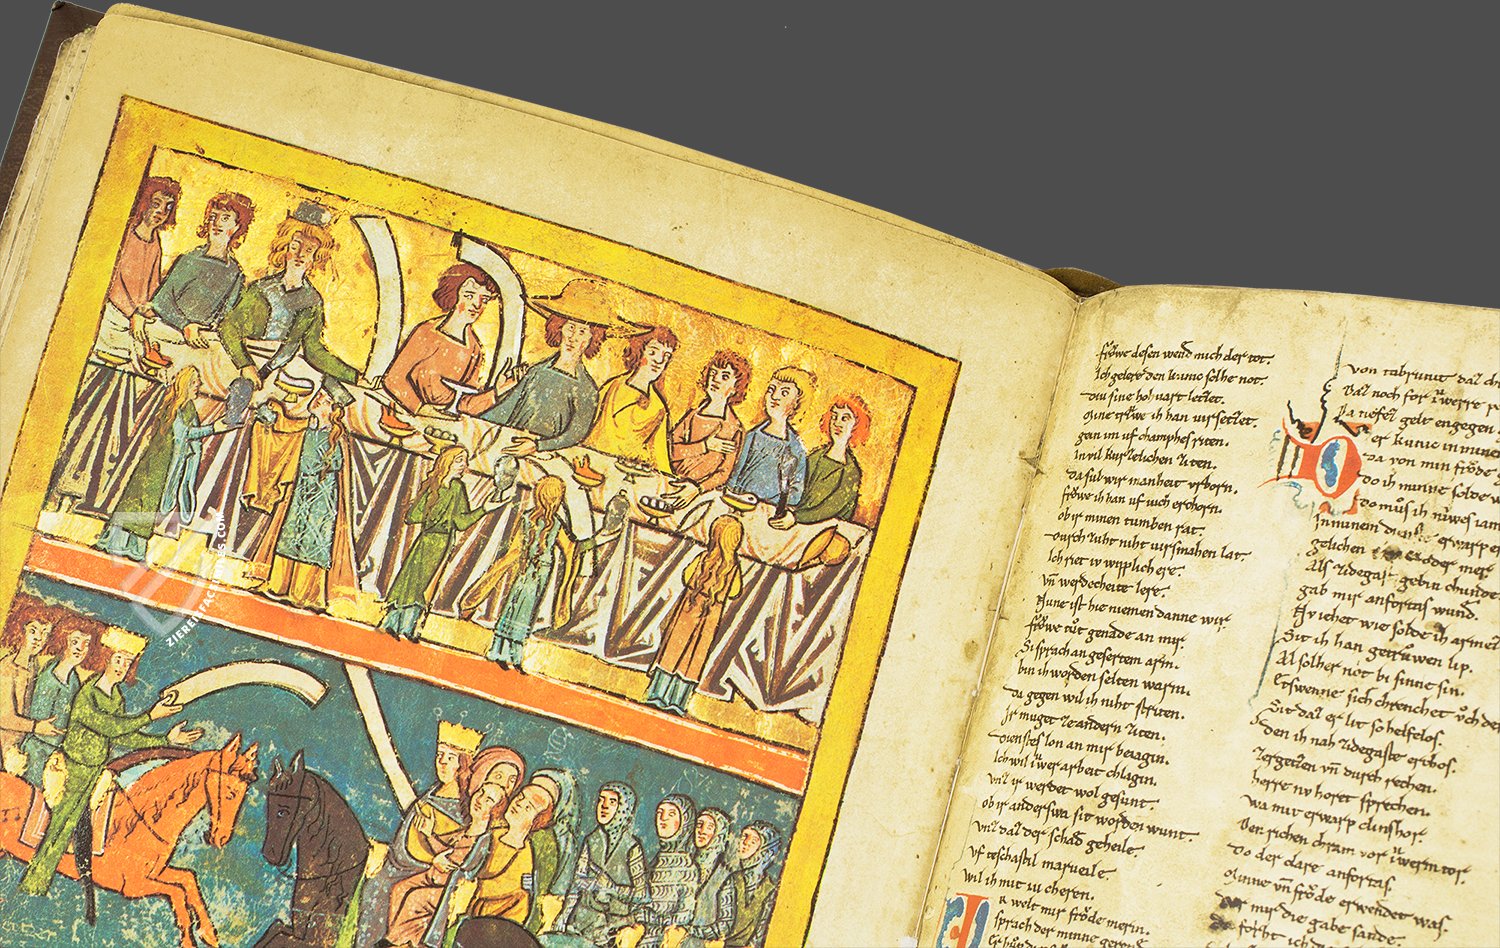 frŏwe desen wend mich der tot.
Ich gelere den kunic solhe not.
div sine hohvart letzet.
mine trẘe ih han virsetzet.
gein im uf champhes riten.
In vil kurzelichen ziten.
da sul wir manheit vrborn.
frŏwe ih han uf iuch erchorn.
ob ir minen tumben rat.
durch zuht niht virsmahen lat.
Ich riet iv wipplich ere.
vn̄ werdecheite lere.
Nune ist hie niemen danne wir.
frŏwe tůt genade an mir.
Si sprach an gesertem arm.
bin ih worden selten warm.
Da gegen wil ih niht striten.
Ir muget ze andern ziten.
Dienstes lon an mir beiagin.
Ich wil iwer arbeit chlagin.
vnz ir werdet wol gesunt.
ob ir anderswa sit worden wunt.
vnz daz der schad geheile.
vf tschastil marveile.
wil ih mit iv cheren.
ir welt mir frŏde meren.
sprach der minne gerende
von tabrunit daz ch
Daz noch for iwerre p
Ja nofel gelt engegen
er kunic in minen
da von min frŏde
do ih minne solde
do můs ih nẘes iam
In minem dienste erwarp er
gelichen iamer oder mer
Als zidegast gebin chunde
gab mir anfortas wund.
Nv iehet wie solde ih armez
Sit ih han getrẘwen lip.
Al solher not bi sinne sin.
Etswenne sich chrenchet ŏch der
Sit daz er lit so helfelos.
den ih nah zidegaste erchos.
zergetzen vn̄ durch rechen.
herre nv horet sprechen.
wa mit erwarp clinshor.
Den richen chram vor iwerm tor.
Do der clare anfortas.
minne vn̄ frŏde erwendet was.
der mir die gabe sande.
ZIEREIS FACSIMILES.COM